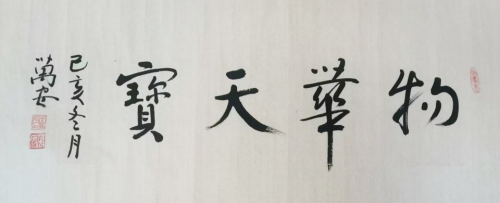 物華天寶
己亥冬月
萬安